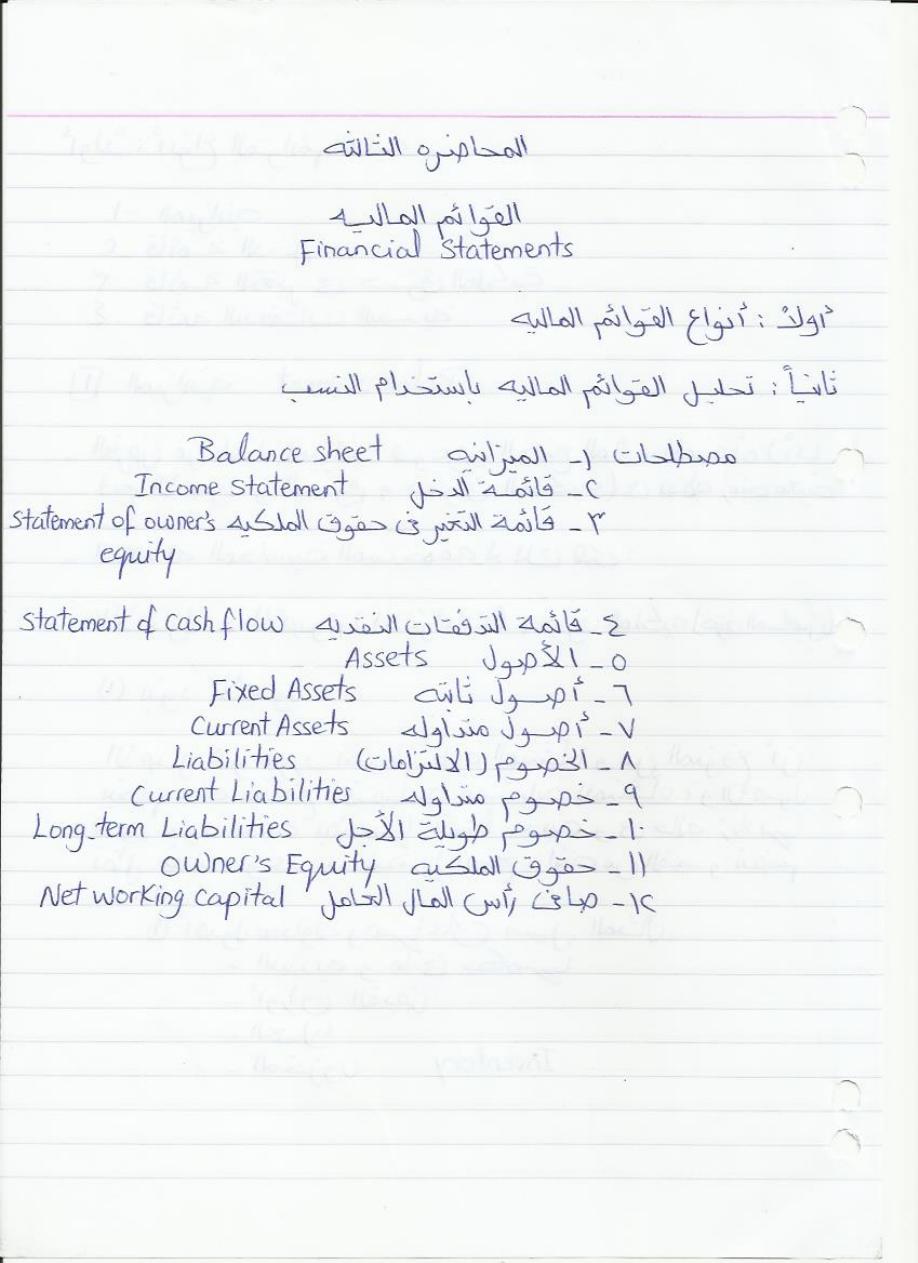 المحاضره الثالثه
القوائم الماليه
Financial Statements
أولاً : أنواع القوائم الماليه
ثانياً : تحليل القوائم الماليه باستخدام النسب
مصطلحات ١- الميزانيه Balance sheet
٢- قائمة الدخل Income Statement
٣- قائمة التغير فى حقوق الملكيه Statement of owner's
equity
٤- قائمة التدفقات النقديه Statement of cash flow
٥- الأصول Assets
٦- أصول ثابته Fixed Assets
٧- أصول متداوله Current Assets
٨- الخصوم (الالتزامات) Liabilities
٩- خصوم متداوله Current Liabilities
١٠- خصوم طويلة الأجل Long-term Liabilities
١١- حقوق الملكيه Owner's Equity
١٢- صافى رأس المال العامل Net working capital